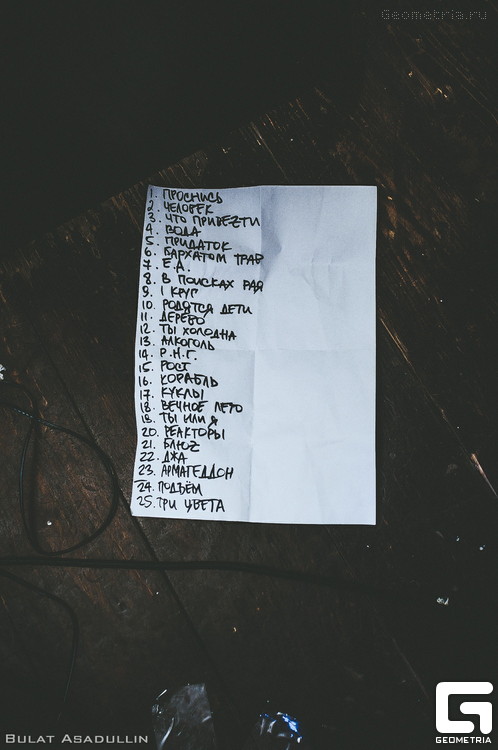 Geometria.ru
1. ПРОСНИСЬ
2. ЧЕЛОВЕК
3. ЧТО ПРИВЕZТИ
4. ВОДА
5. ПРИДАТОК
6. БАРХАТОМ ТРАВ
7. Е.Д.
8. В ПОИСКАХ РАЯ
9. 1 КРУГ
10. РОДЯТСЯ ДЕТИ
11. ДЕРЕВО
12. ТЫ ХОЛОДНА
13. АЛКОГОЛЬ
14. Р.Н.Г.
15. РОСТ
16. КОРАБЛЬ
17. КУКЛЫ
18. ВЕЧНОЕ ЛЕТО
19. ТЫ ИЛИ Я
20. РЕАКТОРЫ
21. БЛЮZ
22. ДЖА
23. АРМАГЕДДОН
24. ПОДЪЁМ
25. ТРИ ЦВЕТА
BULAT ASADULLIN
GEOMETRIA